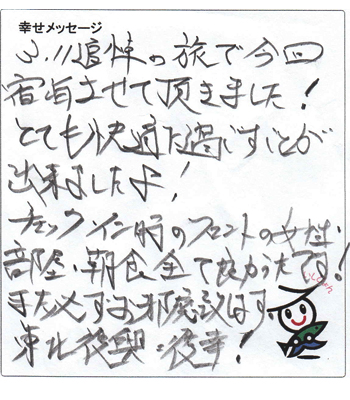 幸せメッセージ
3.11追悼の旅で今回
宿泊させて頂きました!
とても快適に過ごすことが
出来ましたよ!
チェックイン時のフロントの女性、
部屋、朝食全て良かったです!
また必ずお邪魔致します。
東北復興 祈